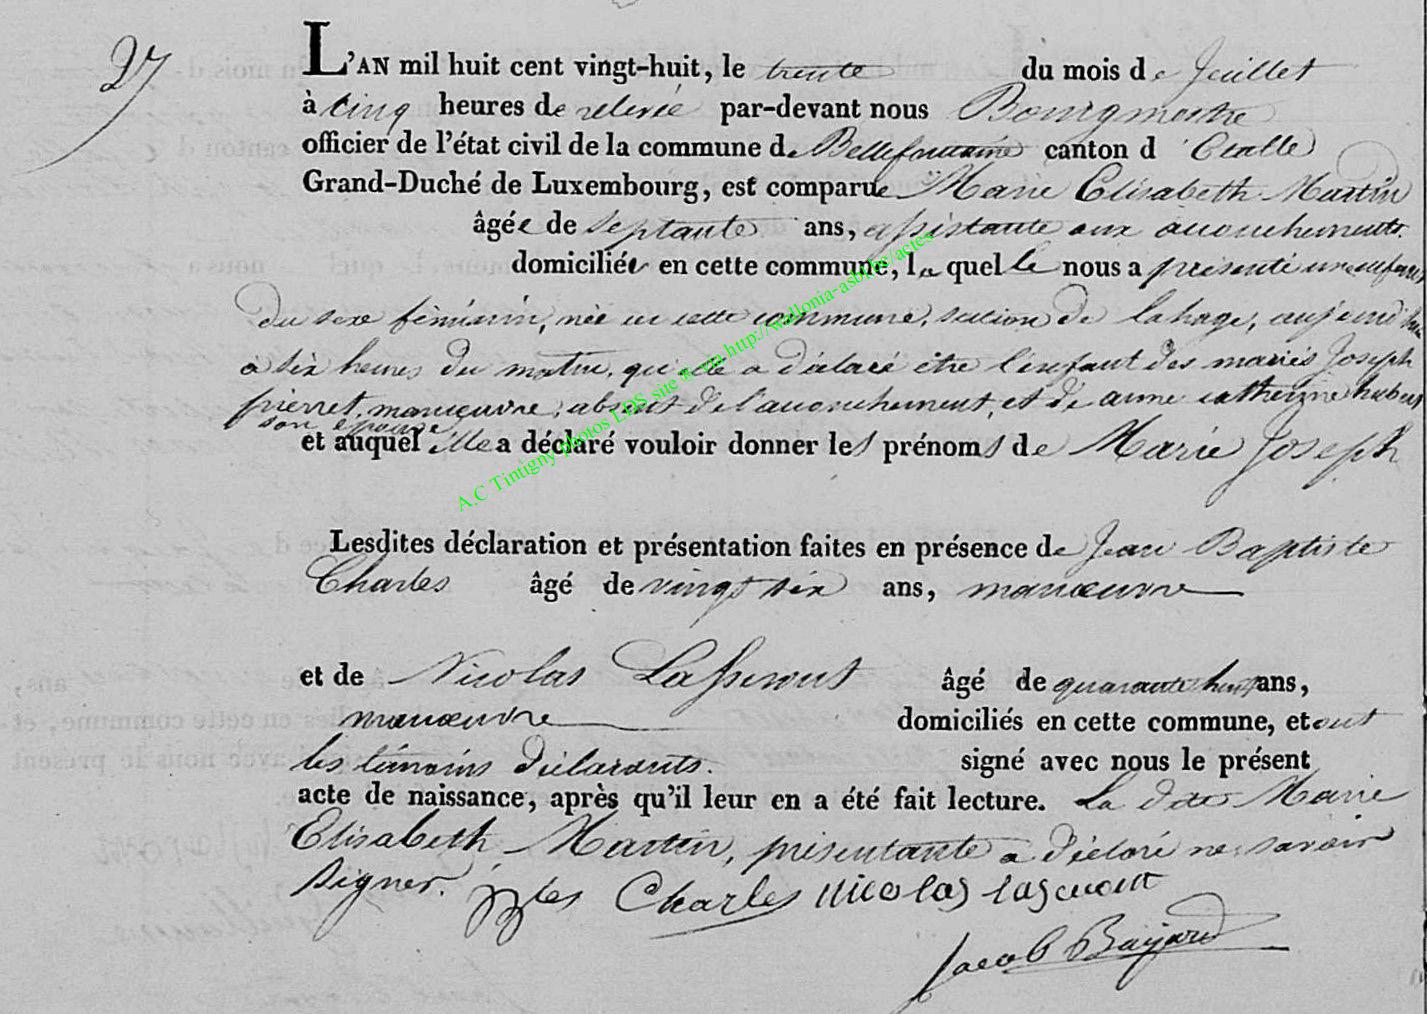 27
L'AN mil huit cent vingt-huit, le trente du mois de Juillet
à cinq heures de relevée par-devant nous Bourgmestre
officier de l'état civil de la commune de Bellefontaine canton d'Etalle
Grand-Duché de Luxembourg, est comparue Marie Elisabeth Martin
âgée de septante ans, assistante aux accouchements.
domiciliée en cette commune, laquelle nous a présenté un enfant
du sexe féminin, née en cette commune, section de lahage, aujourd'hui
a six heures du matin, qu'elle a déclaré être l'enfant des mariés Joseph
pierret, manœuvre, absent de l'accouchement, et de anne catherine hubert
son épouse
et auquel elle a déclaré vouloir donner les prénoms de Marie Joseph
Lesdites déclaration et présentation faites en présence de Jean Baptiste
Charles âgé de vingt six ans, manœuvre
et de Nicolas Lassenout âgé de quarante huit ans,
manœuvre domiciliés en cette commune, et ont
les témoins déclarants. signé avec nous le présent
acte de naissance, après qu'il leur en a été fait lecture. La dite Marie
Elisabeth Martin, présentante a déclaré ne savoir
signer. Charles nicolas
Jacob Bayard
A.C Tintigny photos LDS site & via http://wallonia-asbl.be/actes